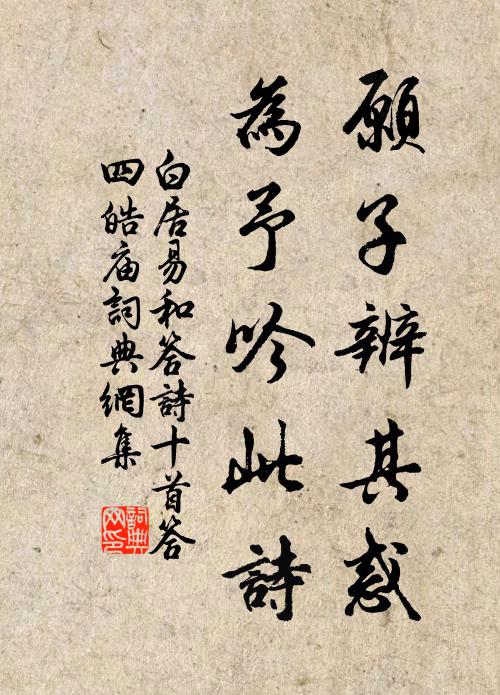 願子辨其惑
為予吟此詩
白居易和答詩十首答
四皓庙詞典網集
詞典
网印